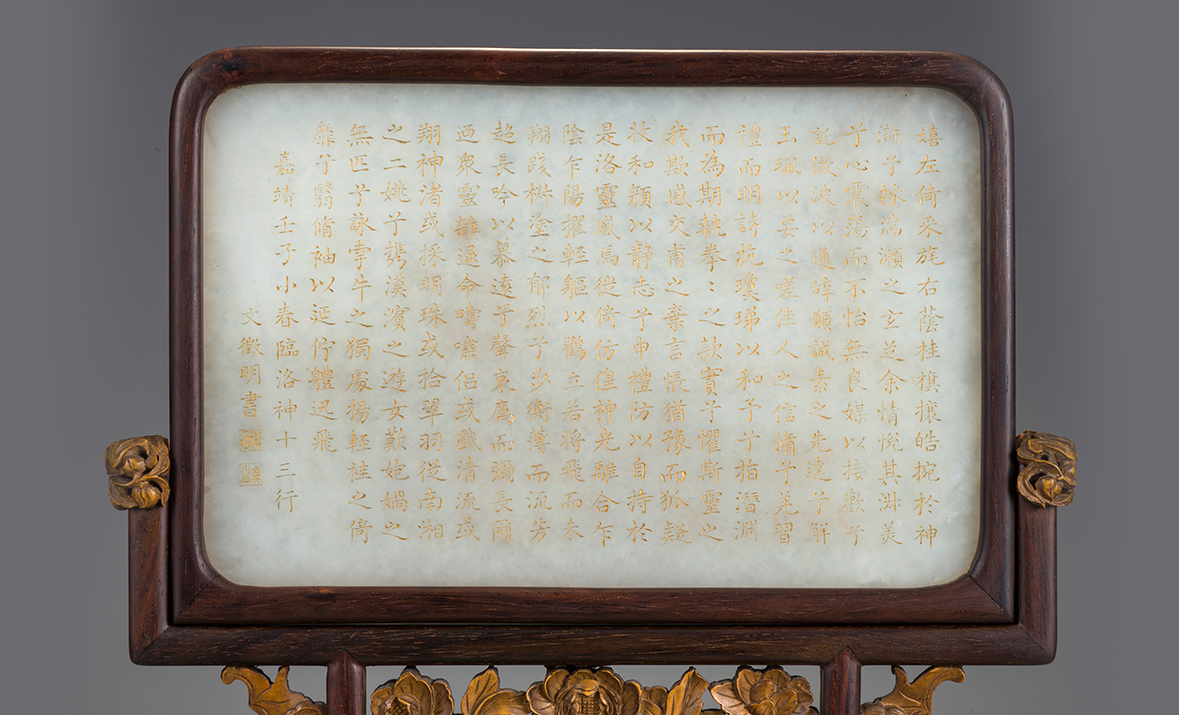 嬉左倚采旄右蔭桂旗攘皓捥於神
滸兮採湍瀨之玄芝余情悅其淑美
兮心震蕩而不怡無良媒以接歡兮
託微波以通辭願誠素之先達兮解
玉珮以要之嗟佳人之信脩兮羌習
禮而明詩抗瓊珶以和予兮指潛淵
而為期執拳〻之款實兮懼斯靈之
我欺感交甫之棄言悵猶豫而狐疑
收和顏以静志兮申禮防以自持於
是洛靈感焉徙倚仿偟神光離合乍
陰乍陽擢輕軀以鶴立若將飛而未
翔踐椒塗之郁烈兮步衡薄而流芳
超長吟以慕遠兮聲哀厲而彌長爾
迺衆靈雜遝命疇嘯侶或戲清流或
翔神渚或採明珠或拾翠羽從南湘
之二姚兮攜漢濱之遊女歎妃媧之
無匹兮詠牽牛之獨處揚輕袿之倚
靡兮翳脩袖以延佇軆迅飛
嘉靖壬子小春臨洛神十三行
文徵明書